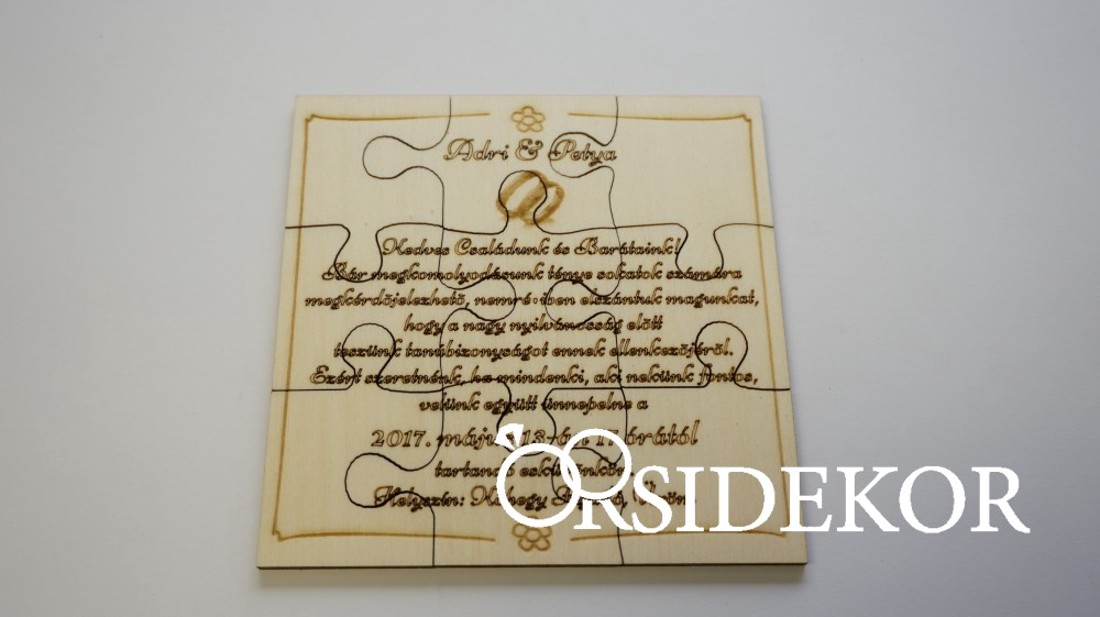 Adri & Petya
Kedves Családunk és Barátaink!
Bár megkomolyodásunk ténye sokatok számára
megkérdőjelezhető, nemrégiben elszántuk magunkat,
hogy a nagy nyilvánosság előtt
teszünk tanúbizonyságot ennek ellenkezőjéről.
Ezért szeretnénk, ha mindenki, aki nekünk fontos,
velünk együtt ünnepelne a
2017. május 13-án 17 órától
tartandó esküvőnkön.
Helyszín: Kőhegy
ORSIDEKOR